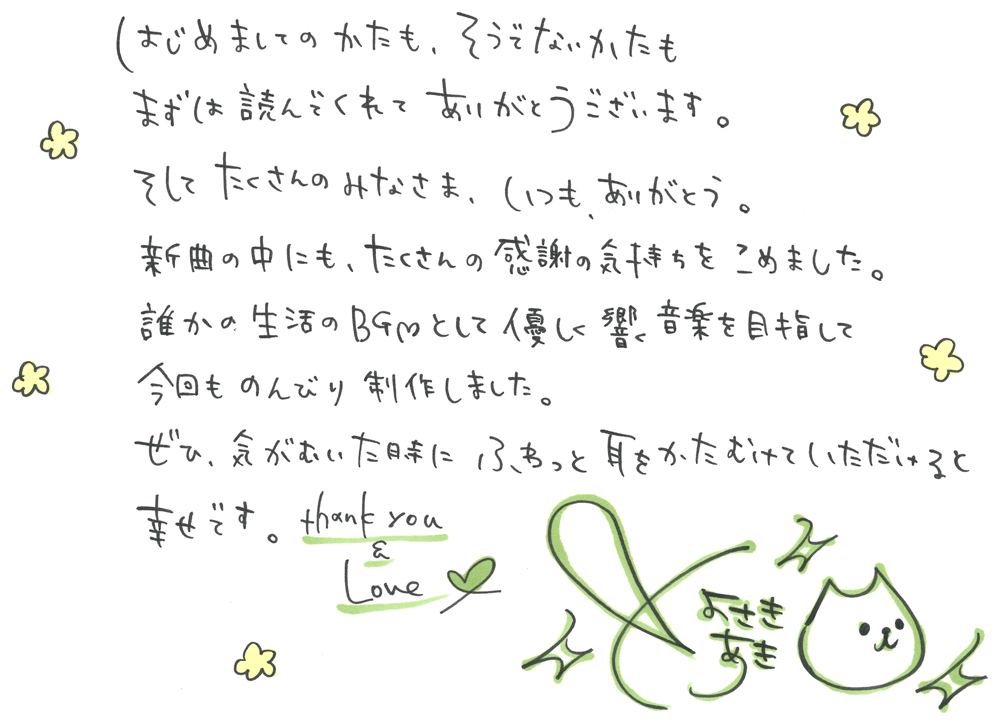 はじめましてのかたも、そうでないかたも
まずは読んでくれてありがとうございます。
そしてたくさんのみなさま、いつも、ありがとう。
新曲の中にも、たくさんの感謝の気持ちをこめました。
誰かの生活のBGMとして優しく響く音楽を目指して
今回ものんびり制作しました。
ぜひ、気がむいた時にふわっと耳をかたむけていただけると
幸せです。thank you
&
Love
よさき
あき